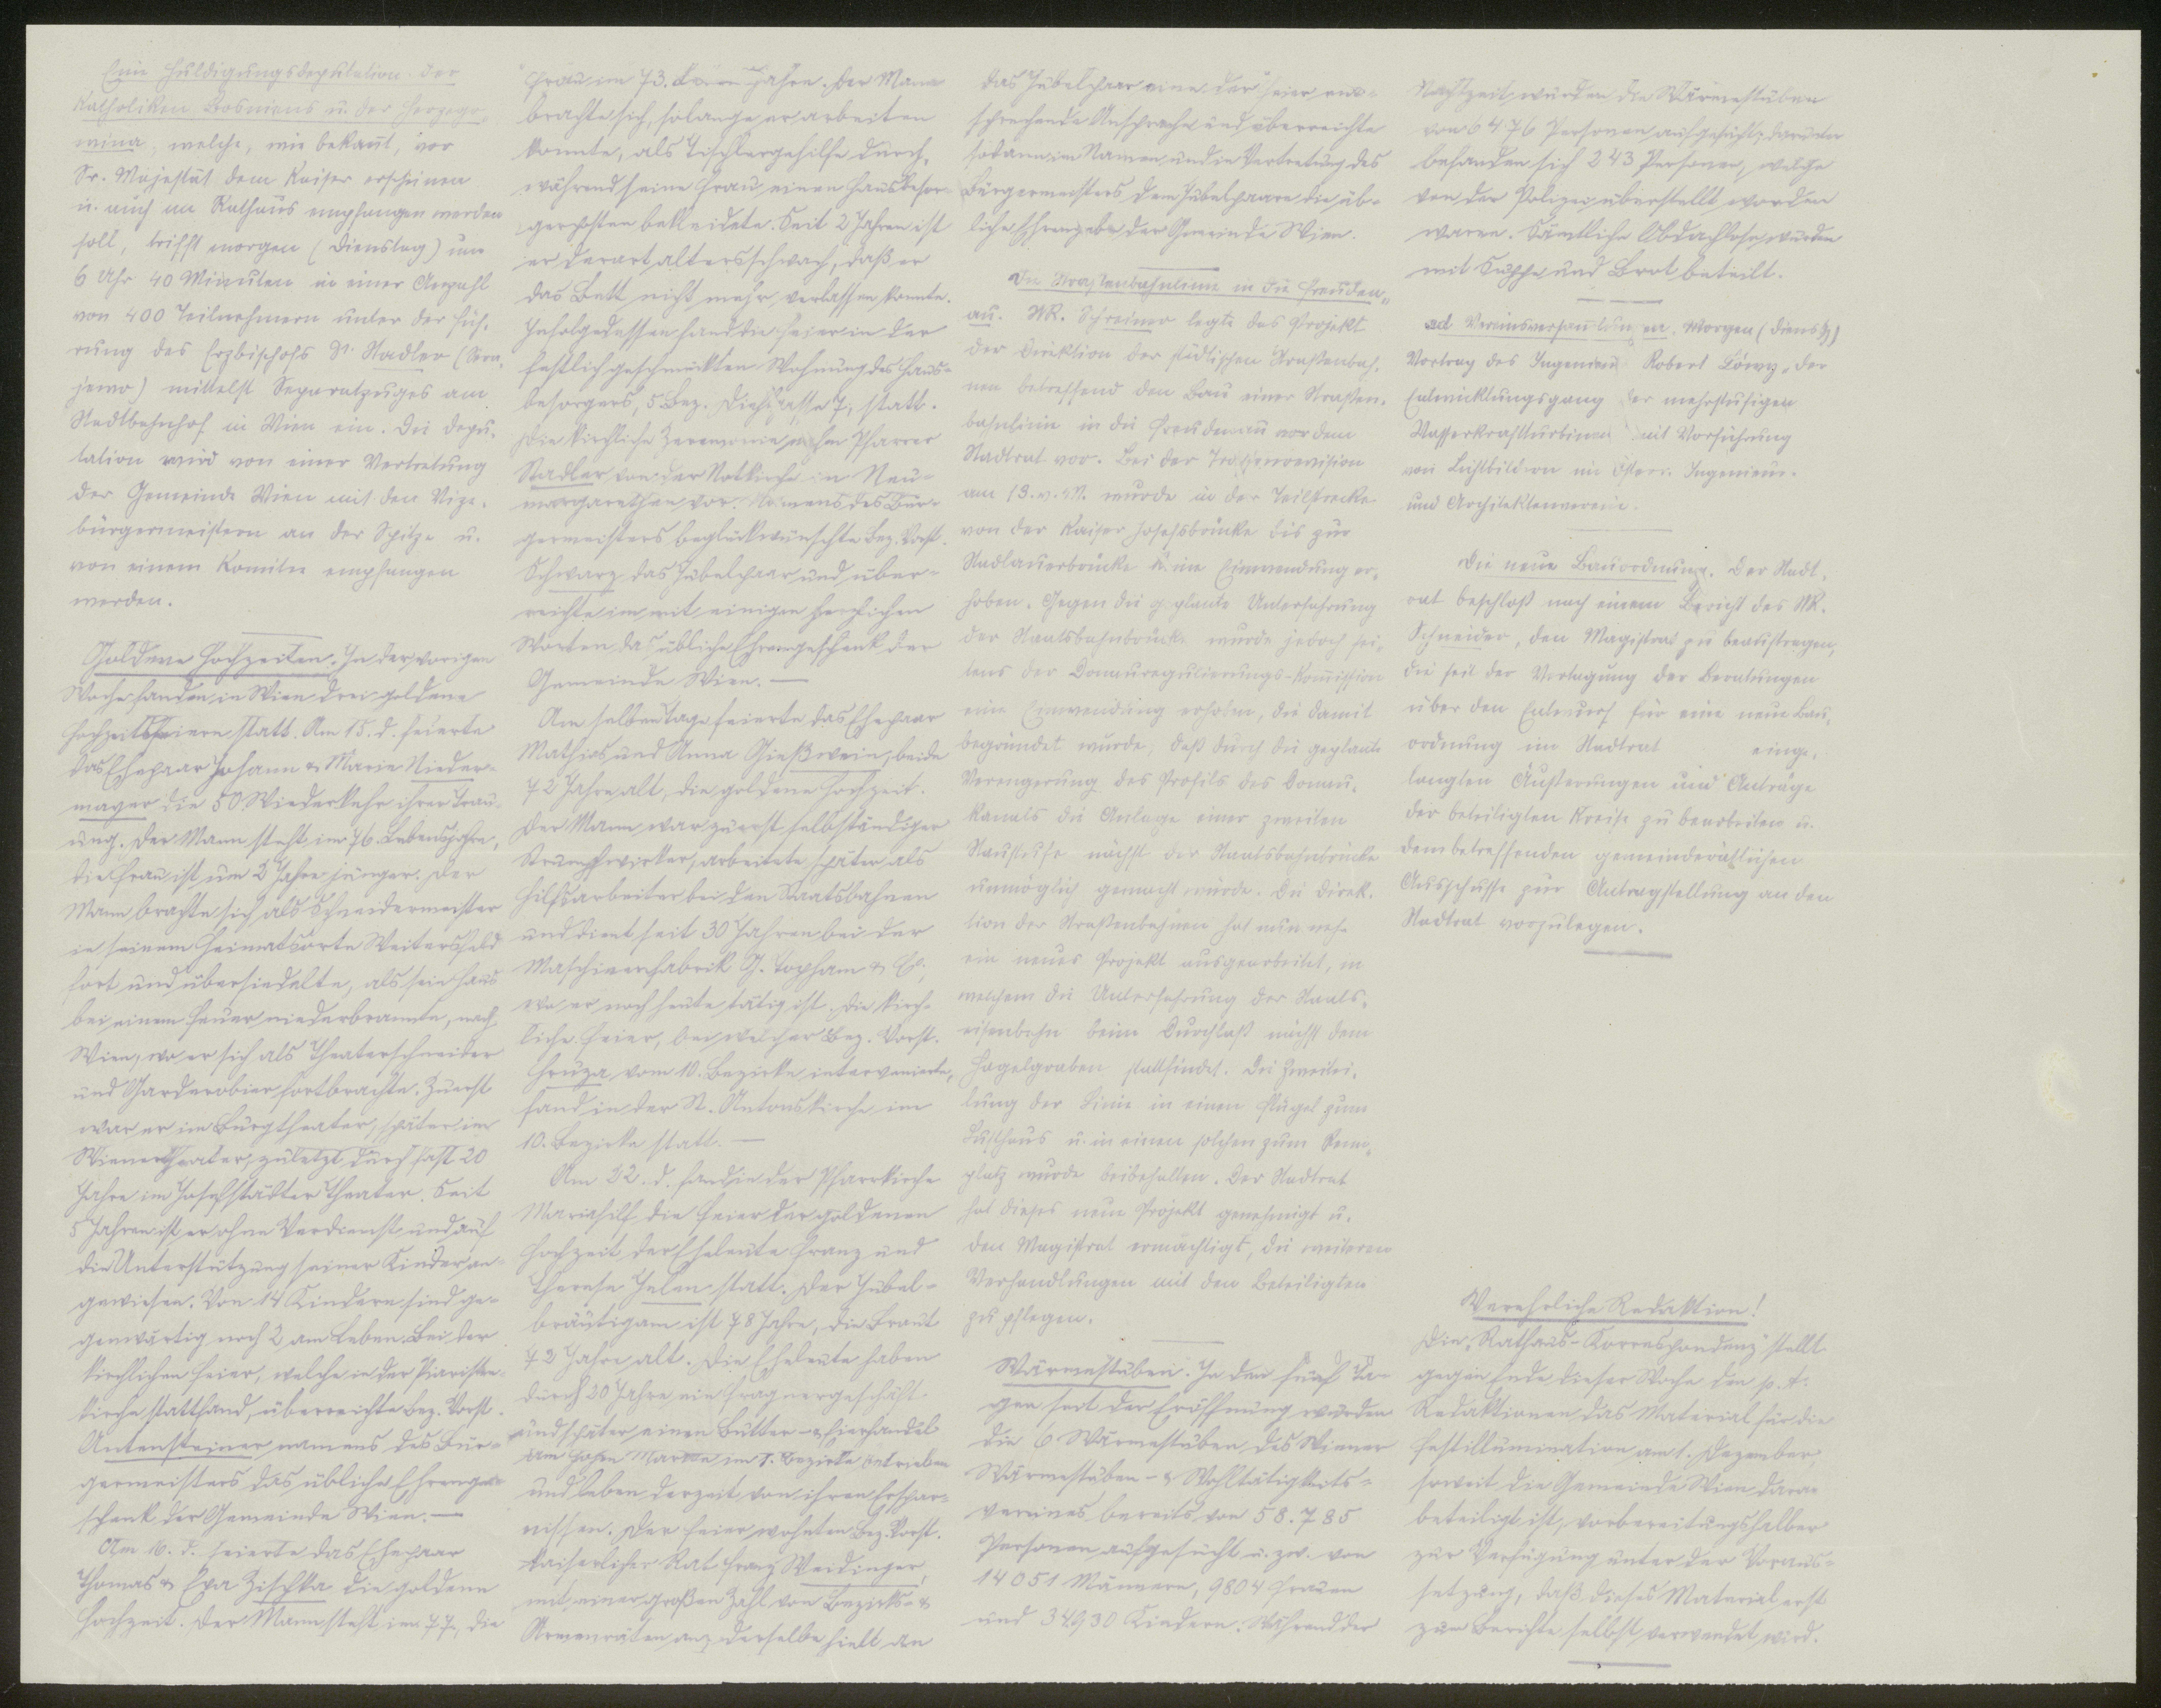 Eine Huldigungsdeputation der
Katholiken Bosniens u. der Herzego-
wina, welche, wie bekannt, vor
Sr. Majestät dem Kaiser erscheinen
u. auch im Rathaus empfangen werden
soll, trifft morgen (Dienstag) um
6 Uhr 40 Minuten in einer Anzahl
von 400 Teilnehmern unter der Füh-
rung des Erzbischofs Dr. Stadler (Sera-
jewo) mittelst Separatzuges am
Stadtbahnhof in Wien ein. Die Depu-
tation wird von einer Vertretung
der Gemeinde Wien mit den Vize-
bürgermeistern an der Spitze u.
von einem Komitee empfangen
werden.
Goldene Hochzeiten. In der vorigen
Woche fanden in Wien drei goldene
Hochzeitsfeiern statt. Am 15. d. feierte
das Ehepaar Johann & Marie Nieder-
mayer die 50. Wiederkehr ihrer Trau-
ung. Der Mann steht im 76. Lebensjahre,
die Frau ist um 2 Jahre jünger. Der
Mann brachte sich als Schneidermeister
in seinem Heimatsorte Weitersfeld
fort und übersiedelte, als sein Haus
bei einem Feuer niederbrannte, nach
Wien, wo er sich als Theaterschneider
und Garderobier fortbrachte. Zuerst
war er im Burgtheater, später im
Wienertheater, zuletzt durch fast 20
Jahre im Josefstädter Theater. Seit
5 Jahren ist er ohne Verdienst und auf
die Unterstützung seiner Kinder an-
gewiesen. Von 14 Kindern sind ge-
genwärtig noch 2 am Leben. Bei der
kirchlichen Feier, welche in der Piaristen-
kirche stattfand, überreichte Bez. Vorst.
Untensteiner namens des Bür-
germeisters das übliche Ehrenge-
schenk der Gemeinde Wien. —
Am 16. d. feierte das Ehepaar
Thomas & Eva Zischka die goldene
Hochzeit. Der Mann steht im 77., die
Frau im 73. Jahre. Der Mann
brachte sich, solange er arbeiten
konnte, als Tischlergehilfe durch,
während seine Frau einen Hausbesor-
gerposten bekleidete. Seit 2 Jahren ist
er derart altersschwach, daß er
das Bett nicht mehr verlassen konnte.
Infolgedessen fand die Feier in der
festlich geschmückten Wohnung des Haus-
besorgers, 5. Bez. Diehlgasse 7, statt.
Die kirchliche Zeremonie nahm Pfarrer
Stadler von der Notkirche in Neu-
margarethen vor. Namens des Bür-
germeisters beglückwünschte Bez. Vorst.
Schwarz das Jubelpaar und über-
reichte ihm mit einigen herzlichen
Worten das übliche Ehrengeschenk der
Gemeinde Wien. —
Am selben Tage feierte das Ehepaar
Mathias und Anna Gießwein, beide
72 Jahre alt, die goldene Hochzeit.
Der Mann war zuerst selbständiger
Strumpfwirker, arbeitete später als
Hilfsarbeiter bei den Staatsbahnen
und dient seit 30 Jahren bei der
Maschinenfabrik J. Topham & Co,
wo er noch heute tätig ist. Die kirch-
liche Feier, bei welcher Bez. Vorst.
Hruza vom 10. Bezirke intervenierte,
fand in der St. Antonskirche im
10. Bezirke statt. —
Am 22. d. fand in der Pfarrkirche
Mariahilf die Feier der goldenen
Hochzeit der Eheleute Franz und
Therese Jelen statt. Der Jubel-
bräutigam ist 78 Jahre, die Braut
72 Jahre alt. Die Eheleute haben
durch 20 Jahre ein Fragnergeschäft
und später einen Butter- & Eierhandel
am Hohen Markte im 1. Bezirke betrieben
und leben derzeit von ihren Erspar-
nissen. Der Feier wohnten Bez. Vorst.
kaiserlicher Rat Franz Weidinger,
mit einer großen Zahl von Bezirks- &
Armenräten an; derselbe hielt an
das Jubelpaar eine der Feier ent-
sprechende Ansprache und überreichte
sodann im Namen und in Vertretung des
Bürgermeisters dem Jubelpaare die üb-
liche Ehrengabe der Gemeinde Wien.
Die Straßenbahnlinie in die Freuden-
au. StR. Schreiner legte das Projekt
der Direktion der städtischen Straßenbah-
nen betreffend den Bau einer Straßen-
bahnlinie in die Freudenau vor dem
Stadtrat vor. Bei der Trassenrevision
am 13. v. M. wurde in der Teilstrecke
von der Kaiser Josefsbrücke bis zur
Stadlauerbrücke keine Einwendung er-
hoben. Gegen die geplante Unterfahrung
der Staatsbahnbrücke wurde jedoch sei-
tens der Donauregulierungs-Kommission
eine Einwendung erhoben, die damit
begründet wurde, daß durch die geplante
Verengerung des Profils des Donau-
kanals die Anlage einer zweiten
Staustufe nächst der Staatsbahnbrücke
unmöglich gemacht würde. Die Direk-
tion der Straßenbahnen hat nun
ein neues Projekt ausgearbeitet, in
welchem die Unterfahrung der Staats-
eisenbahn beim Durchlaß nächst dem
Hagelgraben stattfindet. Die Zweitei-
lung der Linie in einen Flügel zum
Lusthaus u. in einen solchen zum Renn-
platz wurde beibehalten. Der Stadtrat
hat dieses neue Projekt genehmigt u.
den Magistrat ermächtigt, die weiteren
Verhandlungen mit den Beteiligten
zu pflegen.
Wärmestuben. In den fünf Ta-
gen seit der Eröffnung wurden
die 6 Wärmestuben des Wiener
Wärmestuben- & Wohltätigkeits-
vereines bereits von 58.785
Personen aufgesucht u. zw. von
14051 Männern, 9804 Frauen
und 34930 Kindern. Während der
Nachtzeit wurden die Wärmestuben
von 6476 Personen aufgesucht; darunter
befanden sich 243 Personen, welche
von der Polizei überstellt worden
waren. Sämtliche Obdachlose wurden
mit Suppe und Brot beteilt.
ad Vereinsversammlungen. Morgen (Dienstg)
Vortrag des Ingenieur Robert Löwy „der
Entwicklungsgang der mehrstufigen
Wasserkraftturbinen mit Vorführung
von Lichtbildern im österr. Ingenieur-
und Architektenverein.
Die neue Bauordnung. Der Stadt-
rat beschloß nach einem Bericht des StR.
Schneider, den Magistrat zu beauftragen,
die seit der Vertagung der Beratungen
über den Entwurf für eine neue Bau-
ordnung im Stadtrat einge-
langten Äußerungen und Anträge
der beteiligten Kreise zu bearbeiten u.
dem betreffenden gemeinderätlichen
Ausschusse zur Antragstellung an den
Stadtrat vorzulegen.
Verehrliche Redaktion!
Die „Rathaus-Korrespondenz" stellt
gegen Ende dieser Woche den p. t.
Redaktionen das Material für die
Festillumination am 1. Dezember,
soweit die Gemeinde Wien daran
beteiligt ist, vorbereitungshalber
zur Verfügung unter der Voraus-
setzung, daß dieses Material erst
zum Berichte selbst verwendet wird.